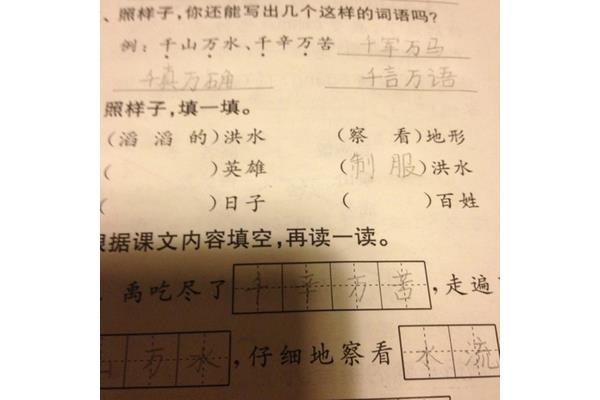 、照样子,你还能写出几个这样的词语吗?
例:千山万水、千辛万苦 千军万马
千真万确 千言万语
照样子,填一填。
(滔 滔 的)洪水 (察 看)地形
( )英雄 (制 服)洪水
( )日子 ( )百姓
根据课文内容填空,再读一读。
禹吃尽了 千辛万苦,走遍
山万水,仔细地察看 水流